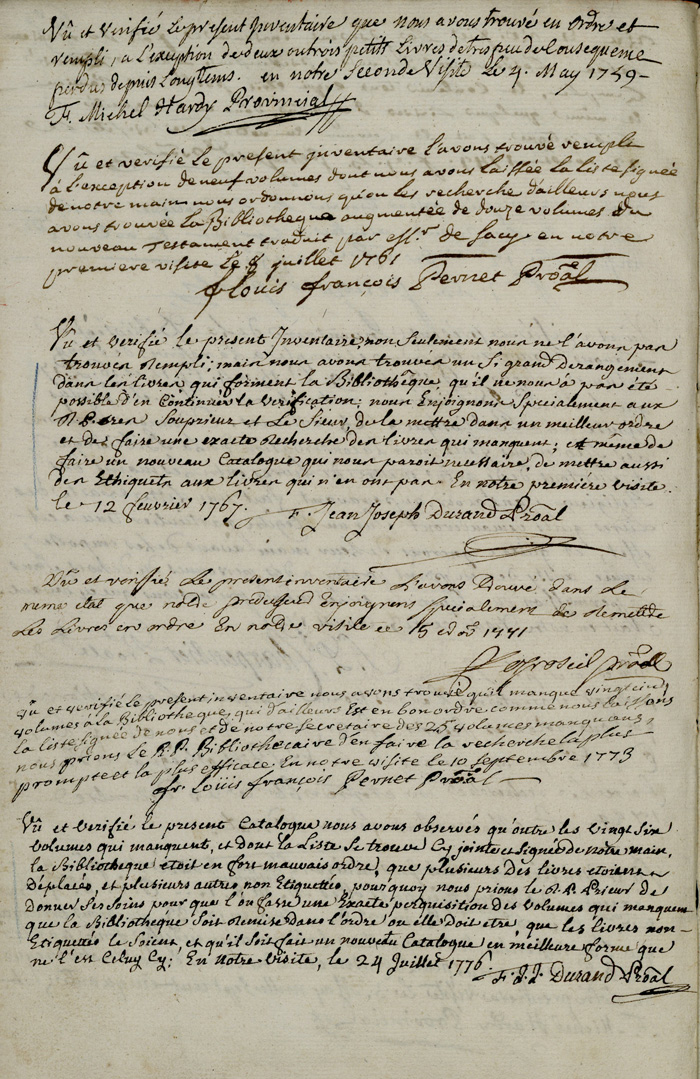 Vû et verifié le present Inventaire que nous avons trouvé en ordre et
rempli, a l'exeption de deux ou trois petits Livres de tres peu de Consequence
perdus depuis Longtems. en notre Seconde Visite Le 4. May 1759 –
F. Michel Hardy Provincial
Vû et verifié le present inventaire l'avons trouvé rempli
à l'exception de neuf volumes dont nous avons laissée la liste signée
de notre main nous ordonnons qu'on les recherche d'ailleurs nous
avons trouvée la Bibliotheque augmentée de douze volumes du
nouveau Testament traduit par Mr. de Sacy en notre
premiere visite le 8 juillet 1761
f Louis françois Pernet Proãl
Vu et verifié le present Inventaire, non seulement nous ne l'avons pas
trouvés Rempli; mais nous avons trouvés un si grand Derangement
dans les livres qui forment la Bibliothêque, qu'il ne nous à pas été
possible d'en Continuer la verification; nous Enjoignons specialement aux
R.P. Souprieur et Le Sieur, de la mettre dans un meilleur ordre
et de faire une exacte Recherche des livres qui manquent; et même de
faire un nouveau Catalogue qui nous paroit necessaire, de mettre aussi
des Ethiquets aux livres qui n'en ont pas. En notre premiere visite.
le 12 fevrier 1767. F. Jean Joseph Durand Proãl
Vu et verifiez Le present inventaire L'avons trouvé dans Le
meme etat que notre predecesseur Enjoignons specialement de Remettre
Les Livres en ordre En notre visite ce 15 1771
Proãl
vu et verifié le present inventaire nous avons trouvé qu'il manque vingt cinq
volumes à la Bibliotheque, qui d'ailleurs Est en bon ordre comme nous laissons
la liste signée de nous et de notre Secretaire des 25 volumes manquans,
nous prions Le R.P. Bibliothecaire d'en faire la recherche la plus
prompte et la plus efficace. En notre visite le 10 septembre 1773
fr. Louis françois Pernet Proãl
Vû et verifié le present Catalogue nous avons observés qu'outre les vingt six
volumes qui manquent, et dont la Liste se trouve Cy jointe et signée de notre main,
la Bibliotheque étoit en fort mauvais ordre, que plusieurs des livres étoient
déplacés, et plusieurs autres non Etiquettés, pourquoy nous prions le R.P. Prieur de
donner ses soins pour que l'on fasse une Exacte perquisition des volumes qui manquent
que la Bibliotheque soit Remise dans l'ordre ou elle doit etre, que les livres non –
Etiquettés le soient, et qu'il soit fait un nouveau Catalogue en meilleure forme que
ne l'est Celuy Cy: En notre visite, le 24 Juillet 1776
F. J. J. Durand Proãl